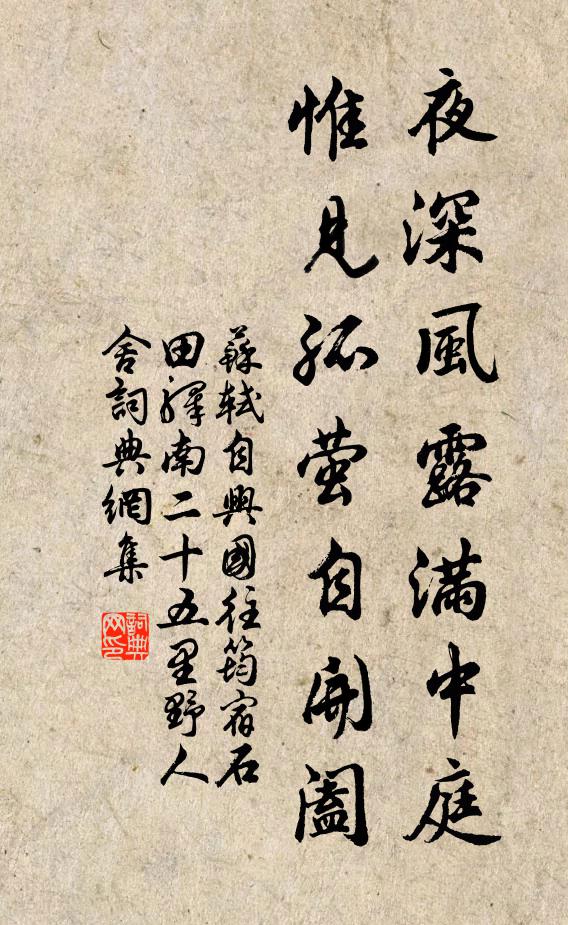 夜深風露滿中庭
惟見孤螢自開闔
蘇軾自興國往筠宿石
田驛南二十五里野人
舍詞典網集
詞典
网印